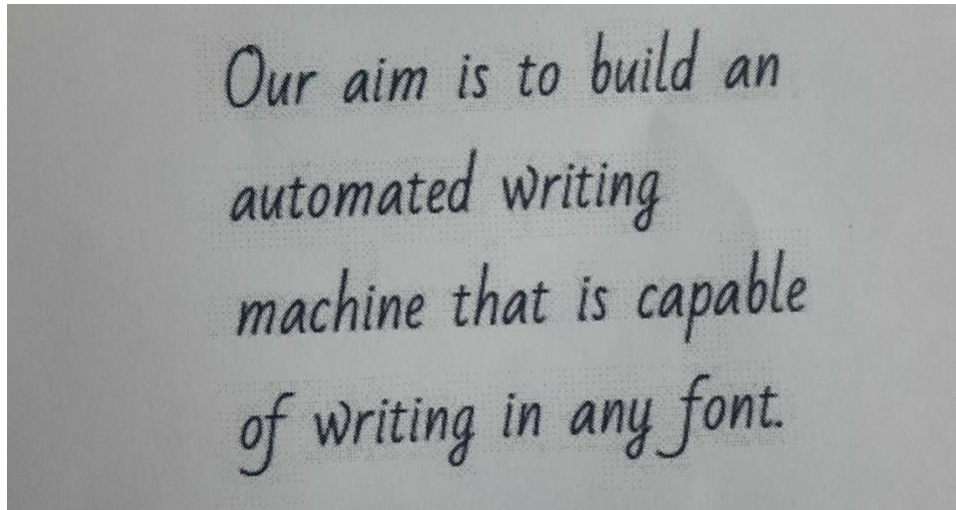 Our aim is to build an
automated writing
machine that is capable
of writing in any font.